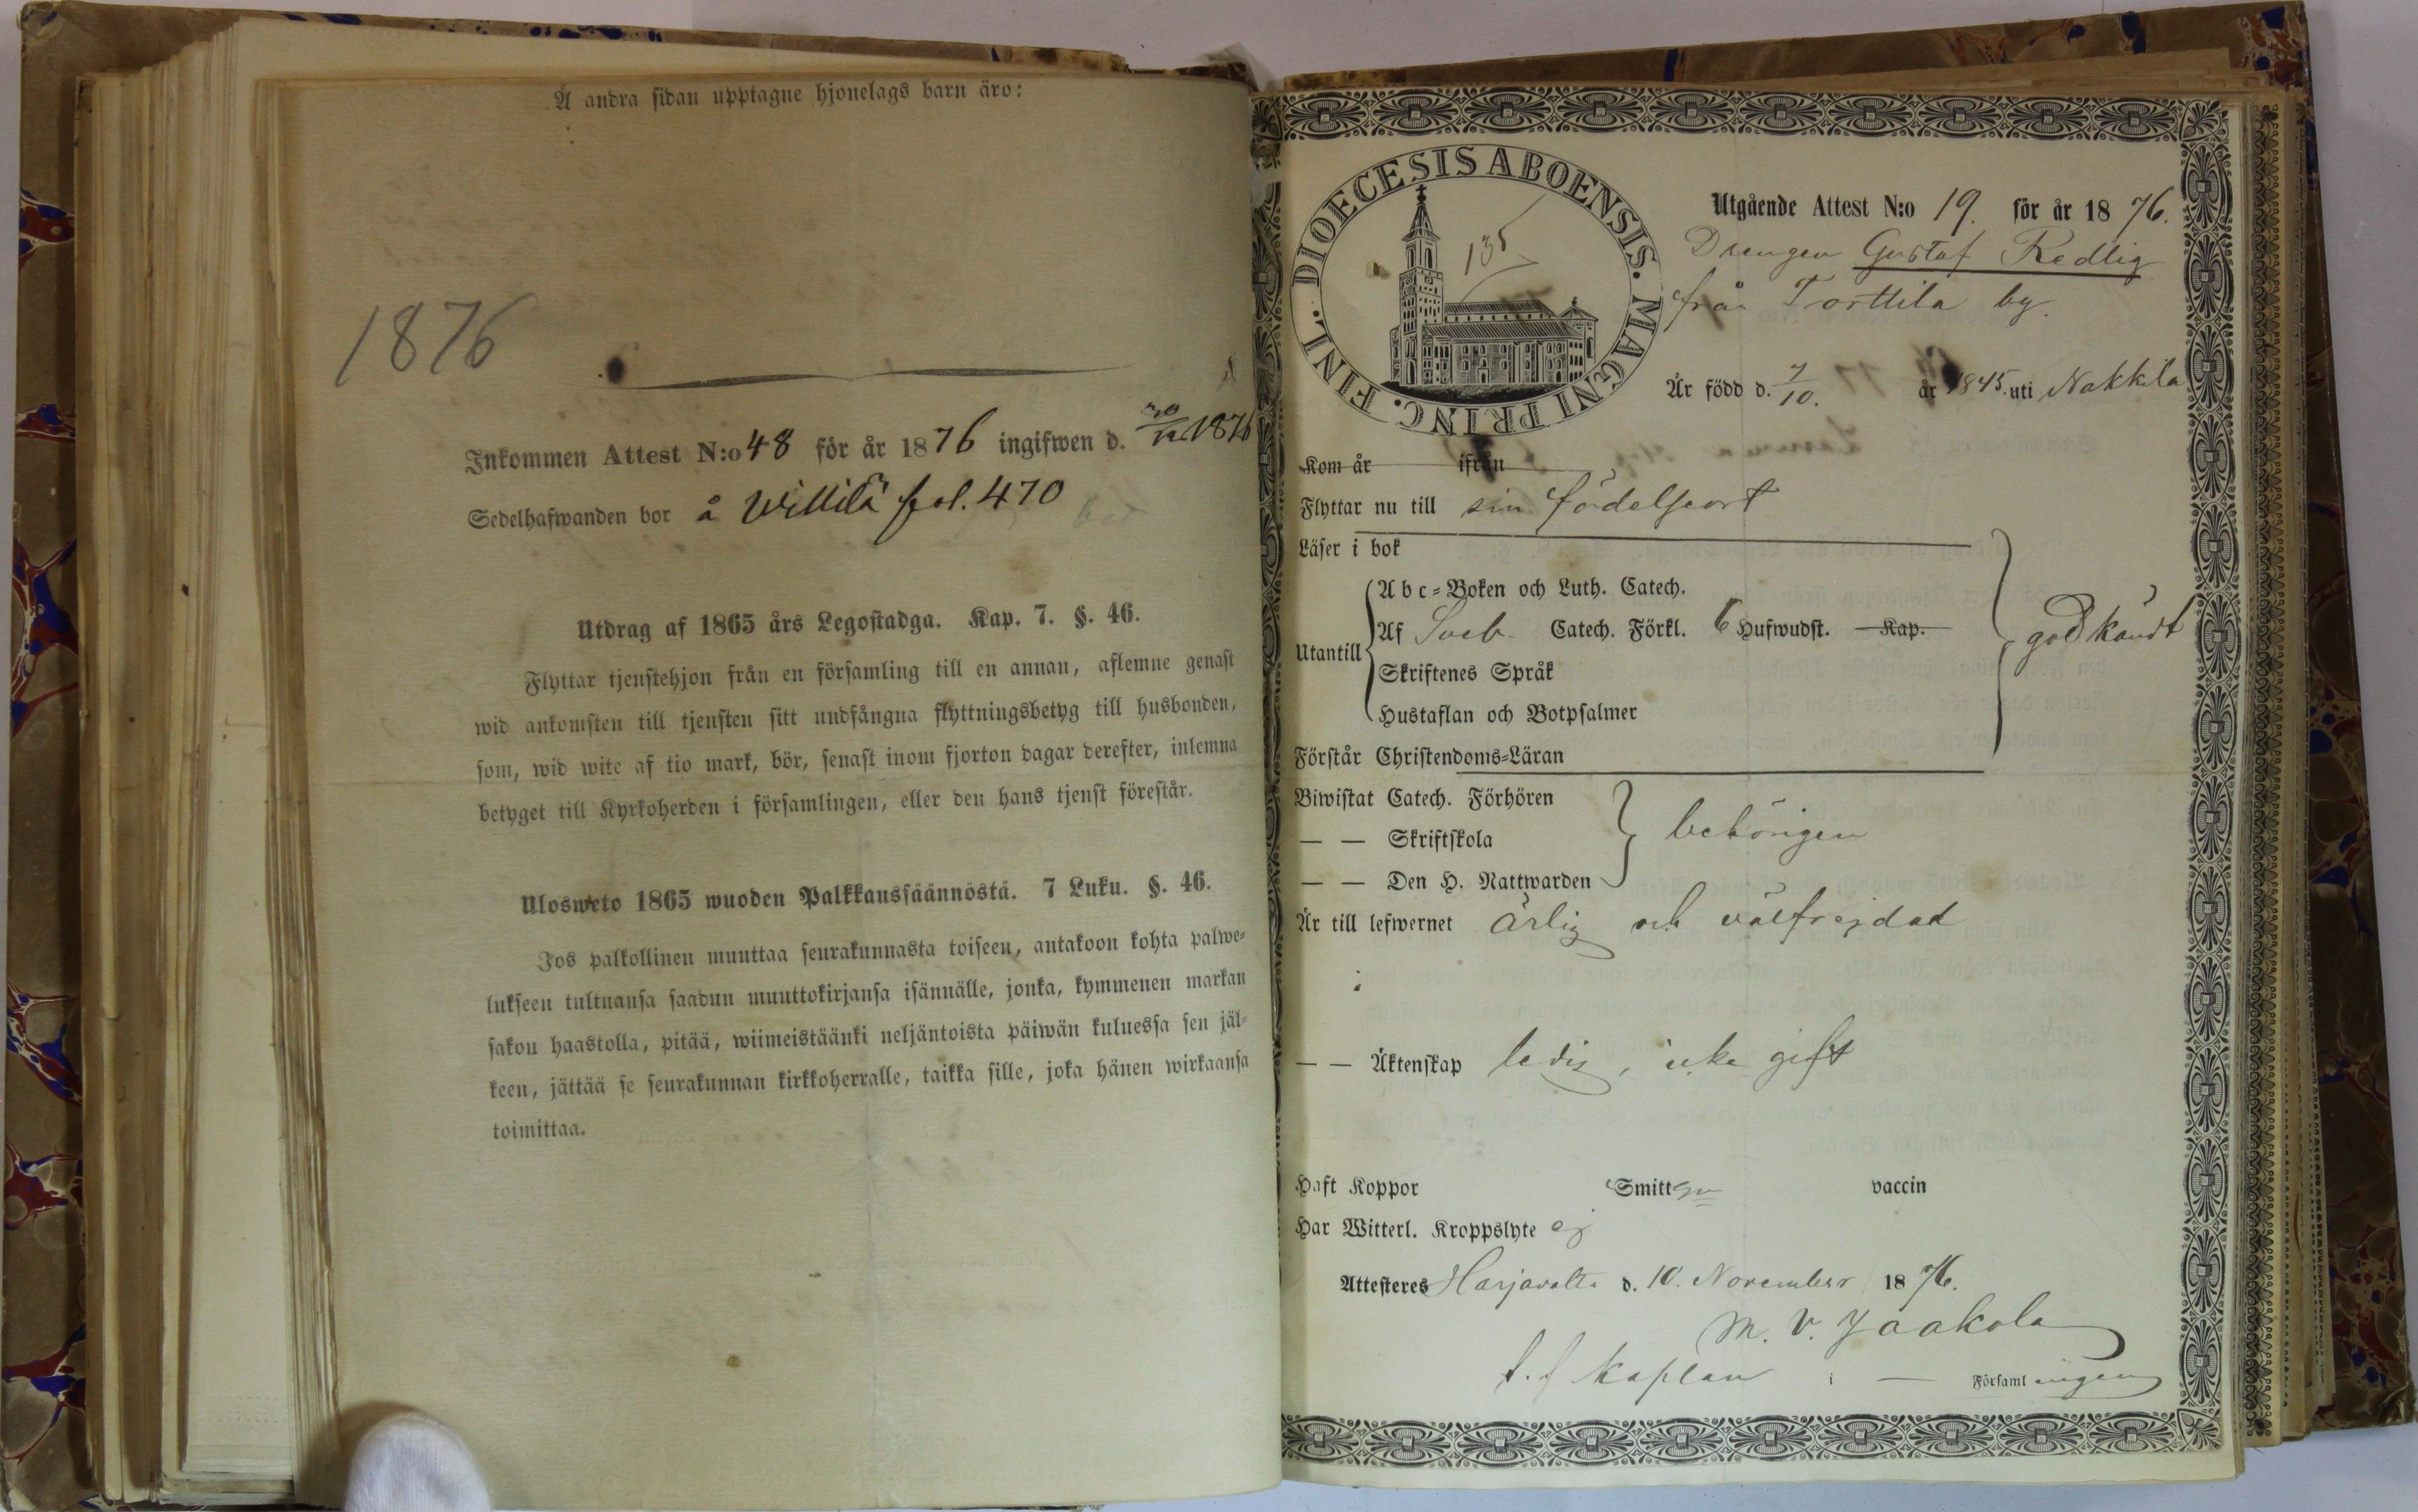 Å andra sidan upptagne hjonelags barn äro:
1876
Inkommen Attest N:o 48 för år 1876 ingifwen d. 30/12 1876
Sedelhafwanden bor å Villilä fol. 470
Utdrag af 1865 års Legostadga. Kap. 7. §. 46.
Flyttar tjenstehjon från en församling till en annan, aflemne genast
wid ankomsten till tjensten sitt undfångna flyttningsbetyg till husbonden,
som, wid wite af tio mark, bör, senast inom fjorton dagar derefter, inlemna
betyget till Kyrkoherden i församlingen, eller den hans tjenst förestår.
Ulosweto 1865 wuoden Palkkaussäännöstä. 7 Luku. §. 46.
Jos palkollinen muuttaa seurakunnasta toiseen, antakoon kohta palwe-
lukseen tultuansa saadun muuttokirjansa isännälle, jonka, kymmenen markan
sakon haastolla, pitää, wiimeistäänki neljäntoista päiwän kuluessa sen jäl-
keen, jättää se seurakunnan kirkkoherralle, taikka sille, joka hänen wirkaansa
toimittaa.
DIOECESIS ABOENSIS. MAGNI PRINC. FINL.
135
Utgående Attest N:o 19. för år 1876.
Drengen Gustaf Redlig
från Torttila by.
Är född d. 7/10. år 1845. uti Nakkila
Kom år ifrån
Flyttar nu till sin födelseort
Läser i bok
Utantill
Abc-Boken och Luth. Catech.
Af Sveb. Catech. Förkl. 6 Hufwudst. Kap.
Skriftenes Språk
Hustaflan och Botpsalmer
godkändt
Förstår Christendoms-Läran
Biwistat Catech. Förhören
— — Skriftskola
— — Den H. Nattwarden
behörigen
Är till lefwernet ärlig och välfrejdad
— — Äktenskap ledig, icke gift
Haft Koppor Smitt vaccin
Har Witterl. Kroppslyte ej
Attesteres Harjavalta d. 10. November 1876.
M. V. Jaakola
t. f. Kaplan i — Församlingen